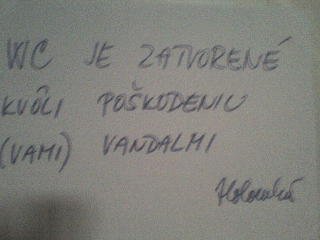 WC JE ZATVORENÉ
KVÔLI POŠKODENIU
(VAMI) VANDALMI